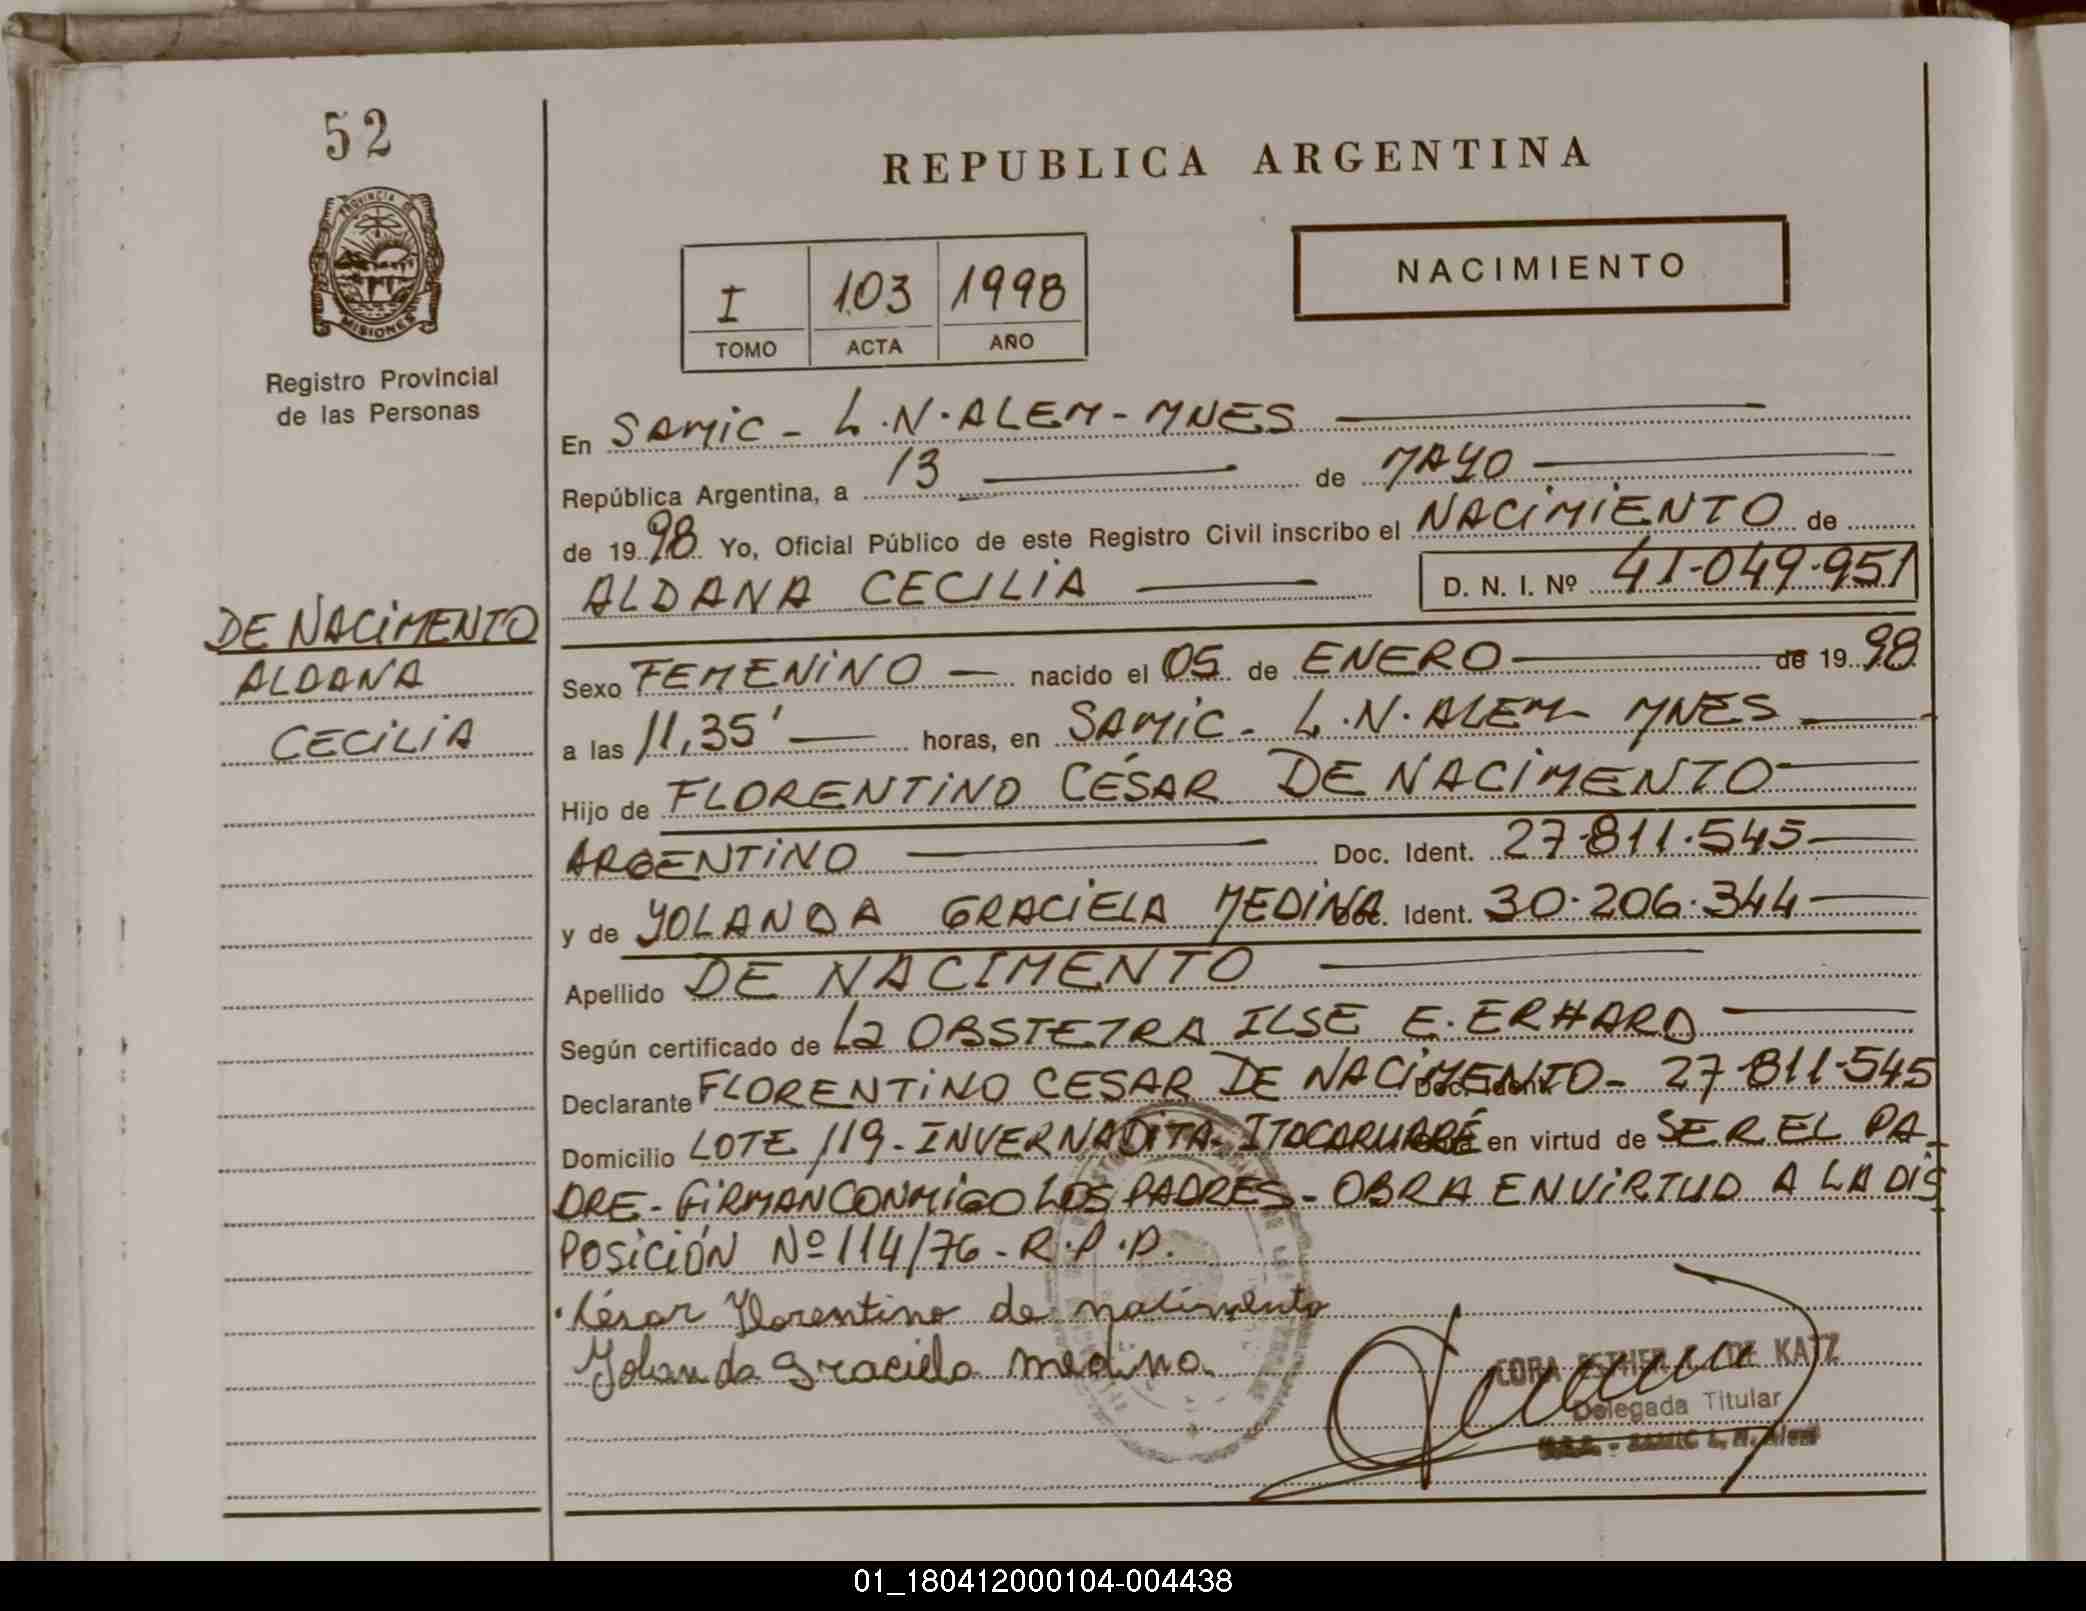 52
REPUBLICA ARGENTINA
PROVINCIA DE
MISIONES
NACIMIENTO
I 103 1998
TOMO ACTA AÑO
Registro Provincial
de las Personas
En SAMIC - L.N. ALEM - MNES
República Argentina, a 13 de MAYO
de 1998 Yo, Oficial Público de este Registro Civil inscribo el NACIMIENTO de
ALDANA CECILIA D. N. I. Nº 41-049-951
DE NACIMENTO
ALDANA
CECILIA
Sexo FEMENINO nacido el 05 de ENERO de 1998
a las 11,35' horas, en SAMIC - L.N. ALEM - MNES
Hijo de FLORENTINO CÉSAR DE NACIMENTO
ARGENTINO Doc. Ident. 27-811.545
y de YOLANDA GRACIELA MEDINA Doc. Ident. 30.206.344
Apellido DE NACIMENTO
Según certificado de La OBSTETRA ILSE E. ERHARD
Declarante FLORENTINO CESAR DE NACIMENTO - Doc. Ident. 27-811-545
Domicilio LOTE 119 - INVERNADITA - ITACARUARÉ en virtud de SER EL PA-
DRE - FIRMAN CONMIGO LOS PADRES - OBRA EN VIRTUD A LA DIS
POSICIÓN Nº 114/76 - R.P.P.
César Florentino de nacimento
Yolanda Graciela medina
CORA ESTHER DE KATZ
Delegada Titular
SAMIC L. N. Alem
01_180412000104-004438